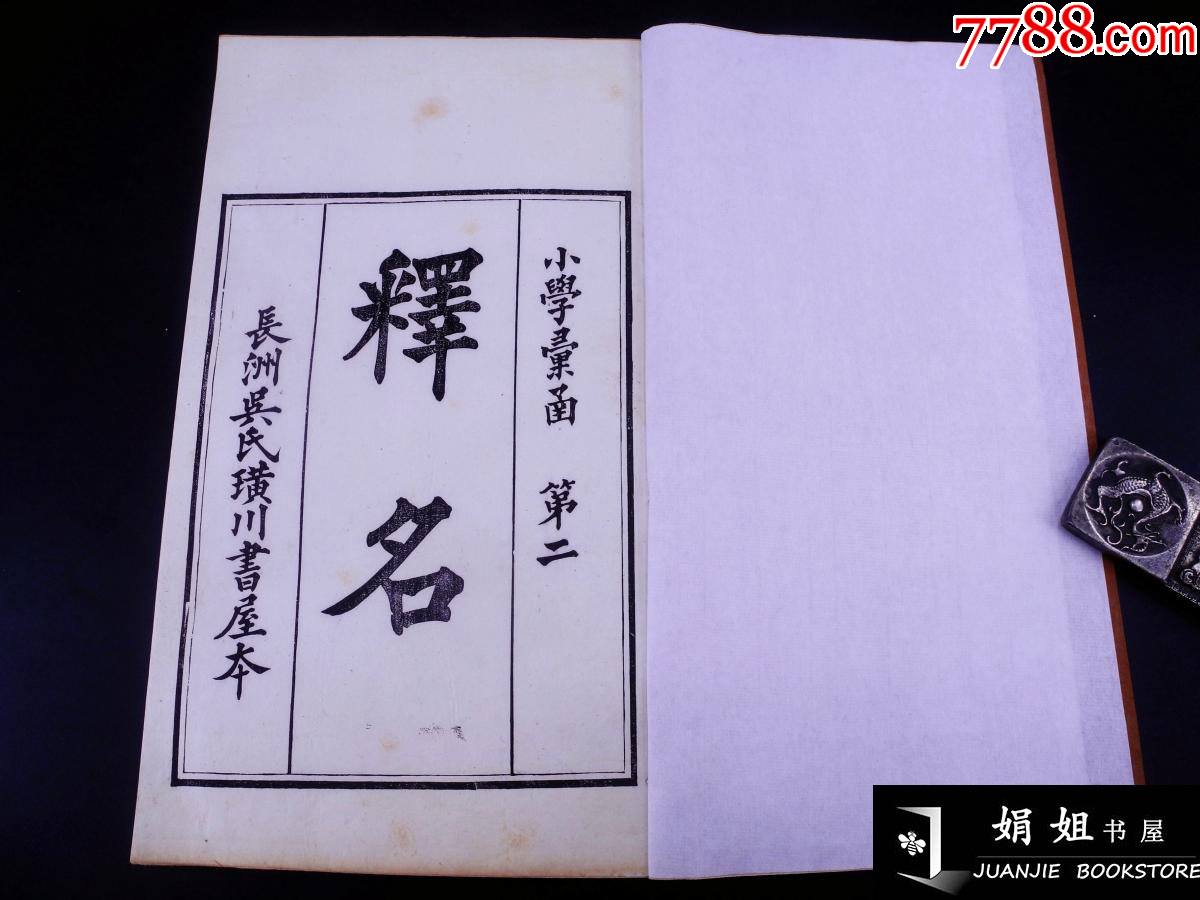 7788.com
小學彙函 第二
釋名
長洲吳氏璜川書屋本
娟姐书屋
JUANJIE BOOKSTORE